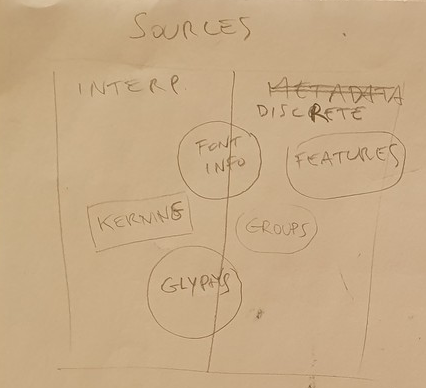 SOURCES
INTERP.
METADATA
DISCRETE
FONT
INFO
FEATURES
KERNING
GROUPS
GLYPHS